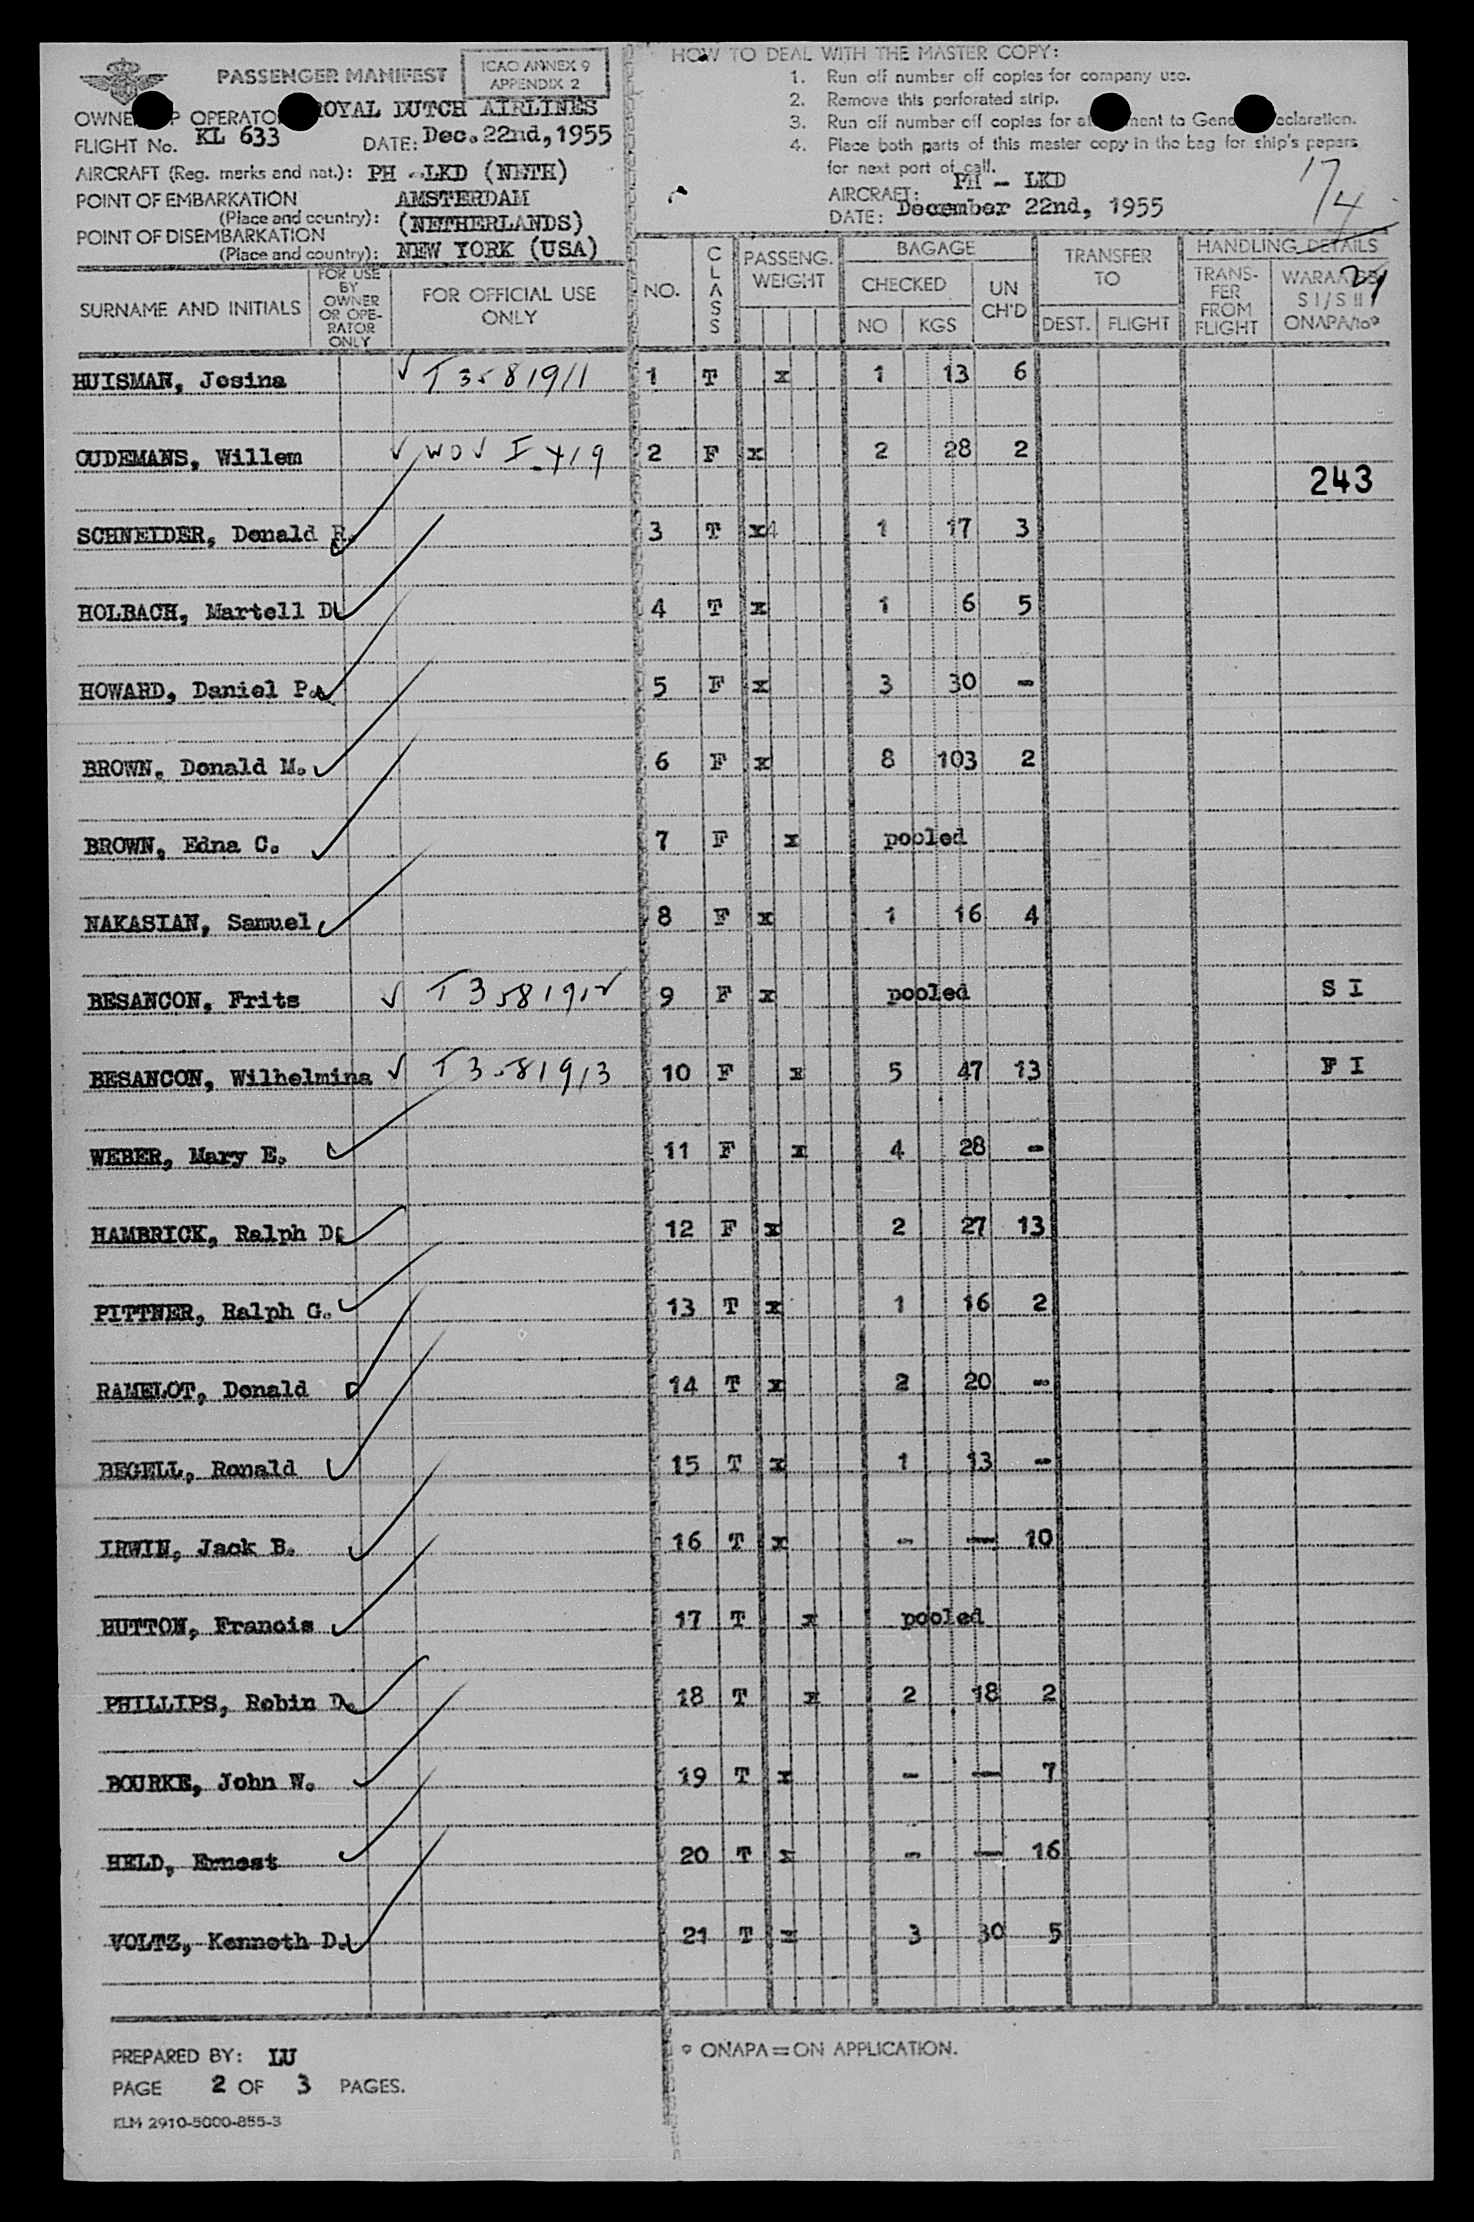 PASSENGER MANIFEST
ICAO ANNEX 9
APPENDIX 2
OPERATO ROYAL DUTCH AIRLINES
FLIGHT No. KL 633 DATE: Dec. 22nd, 1955
AIRCRAFT (Reg. marks and nat.): PH - LKD (NETH)
POINT OF EMBARKATION AMSTERDAM
(Place and country): (NETHERLANDS)
POINT OF DISEMBARKATION
(Place and country): NEW YORK (USA)
HOW TO DEAL WITH THE MASTER COPY:
1. Run off number off copies for company use.
2. Remove this perforated strip.
3. Run off number off copies for at ment to Gene eclaration.
4. Place both parts of this master copy in the bag for ship's papers
for next port of call.
AIRCRAFT: PH - LKD
DATE: December 22nd, 1955
17/4
SURNAME AND INITIALS
FOR USE BY OWNER OR OPE-RATOR ONLY
FOR OFFICIAL USE ONLY
NO.
CLASS
PASSENG. WEIGHT
BAGAGE
CHECKED
NO KGS
UN CH'D
TRANSFER TO
DEST. FLIGHT
HANDLING DETAILS
TRANS-FER FROM FLIGHT
S I / S II
ONAPA/10º
HUISMAN, Josina T 3581911 1 T x 1 13 6
OUDEMANS, Willem 2 F x 2 28 2
243
SCHNEIDER, Donald R. 3 T x4 1 17 3
HOLBACH, Martell D. 4 T x 1 6 5
HOWARD, Daniel P. 5 F x 3 30 -
BROWN, Donald M. 6 F x 8 103 2
BROWN, Edna C. 7 F x pooled
NAKASIAN, Samuel 8 F x 1 16 4
BESANCON, Frits T 3581912 9 F x pooled S I
BESANCON, Wilhelmina T 3581913 10 F x 5 47 13 F I
WEBER, Mary E. 11 F x 4 28 -
HAMBRICK, Ralph D. 12 F x 2 27 13
PITTNER, Ralph G. 13 T x 1 16 2
RAMELOT, Donald 14 T x 2 20 -
BEGELL, Ronald 15 T x 1 13 -
IRWIN, Jack B. 16 T x - - 10
HUTTON, Francis 17 T x pooled
PHILLIPS, Robin D. 18 T x 2 18 2
BOURKE, John W. 19 T x - - 7
HELD, Ernest 20 T x - - 16
VOLTZ, Kenneth D. 21 T x 3 30 5
PREPARED BY: LU
PAGE 2 OF 3 PAGES.
KLM 2910-5000-855-3
º ONAPA = ON APPLICATION.